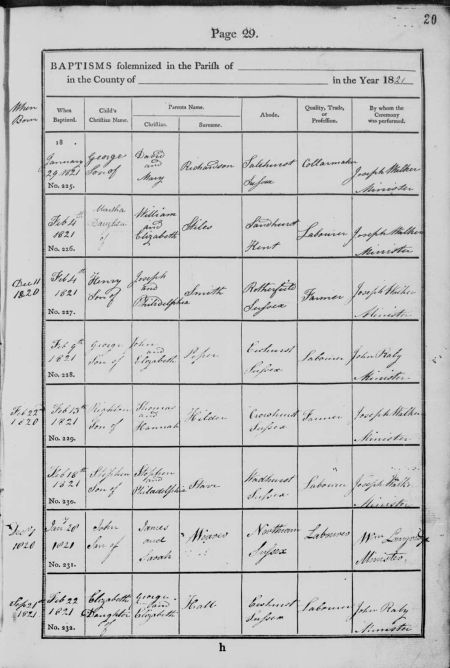 20
Page 29.
BAPTISMS solemnized in the Parish of
in the County of in the Year 1821
When Born
When Baptized.
Child's Christian Name.
Parents Name.
Christian.
Surname.
Abode.
Quality, Trade, or Profession.
By whom the Ceremony was performed.
18
January 29 1821
No. 225.
George Son of
David and Mary
Richardson
Salehurst Sussex
Collarmaker
Joseph Walker Minister
Feb 4th 1821
No. 226.
Martha Daughter of
William and Elizabeth
Stiles
Sandhurst Kent
Labourer
Joseph Walker Minister
Dec 11 1820
Feb 4th 1821
No. 227.
Henry Son of
Joseph and Philadelphia
Smith
Rotherfield Sussex
Farmer
Joseph Walker Minister
Feb 9th 1821
No. 228.
George Son of
John and Elizabeth
Ewhurst Sussex
Labourer
John Raby Minister
Feb 22d 1820
Feb 13th 1821
No. 229.
Son of
Thomas and Hannah
Hilder
Crowhurst Sussex
Farmer
Joseph Walker Minister
Feb 18th 1821
No. 230.
Stephen Son of
Stephen and Philadelphia
Wadhurst Sussex
Labour
Joseph Walker Minister
1820
Jany 20 1821
No. 231.
John Son of
James and Sarah
Northiam Sussex
Labourer
Wm Minister
Sep 21st 1821
Feb 22 1821
No. 232.
Elizabeth Daughter of
George and Elizabeth
Hall
Ewhurst Sussex
Labourer
John Raby Minister
h